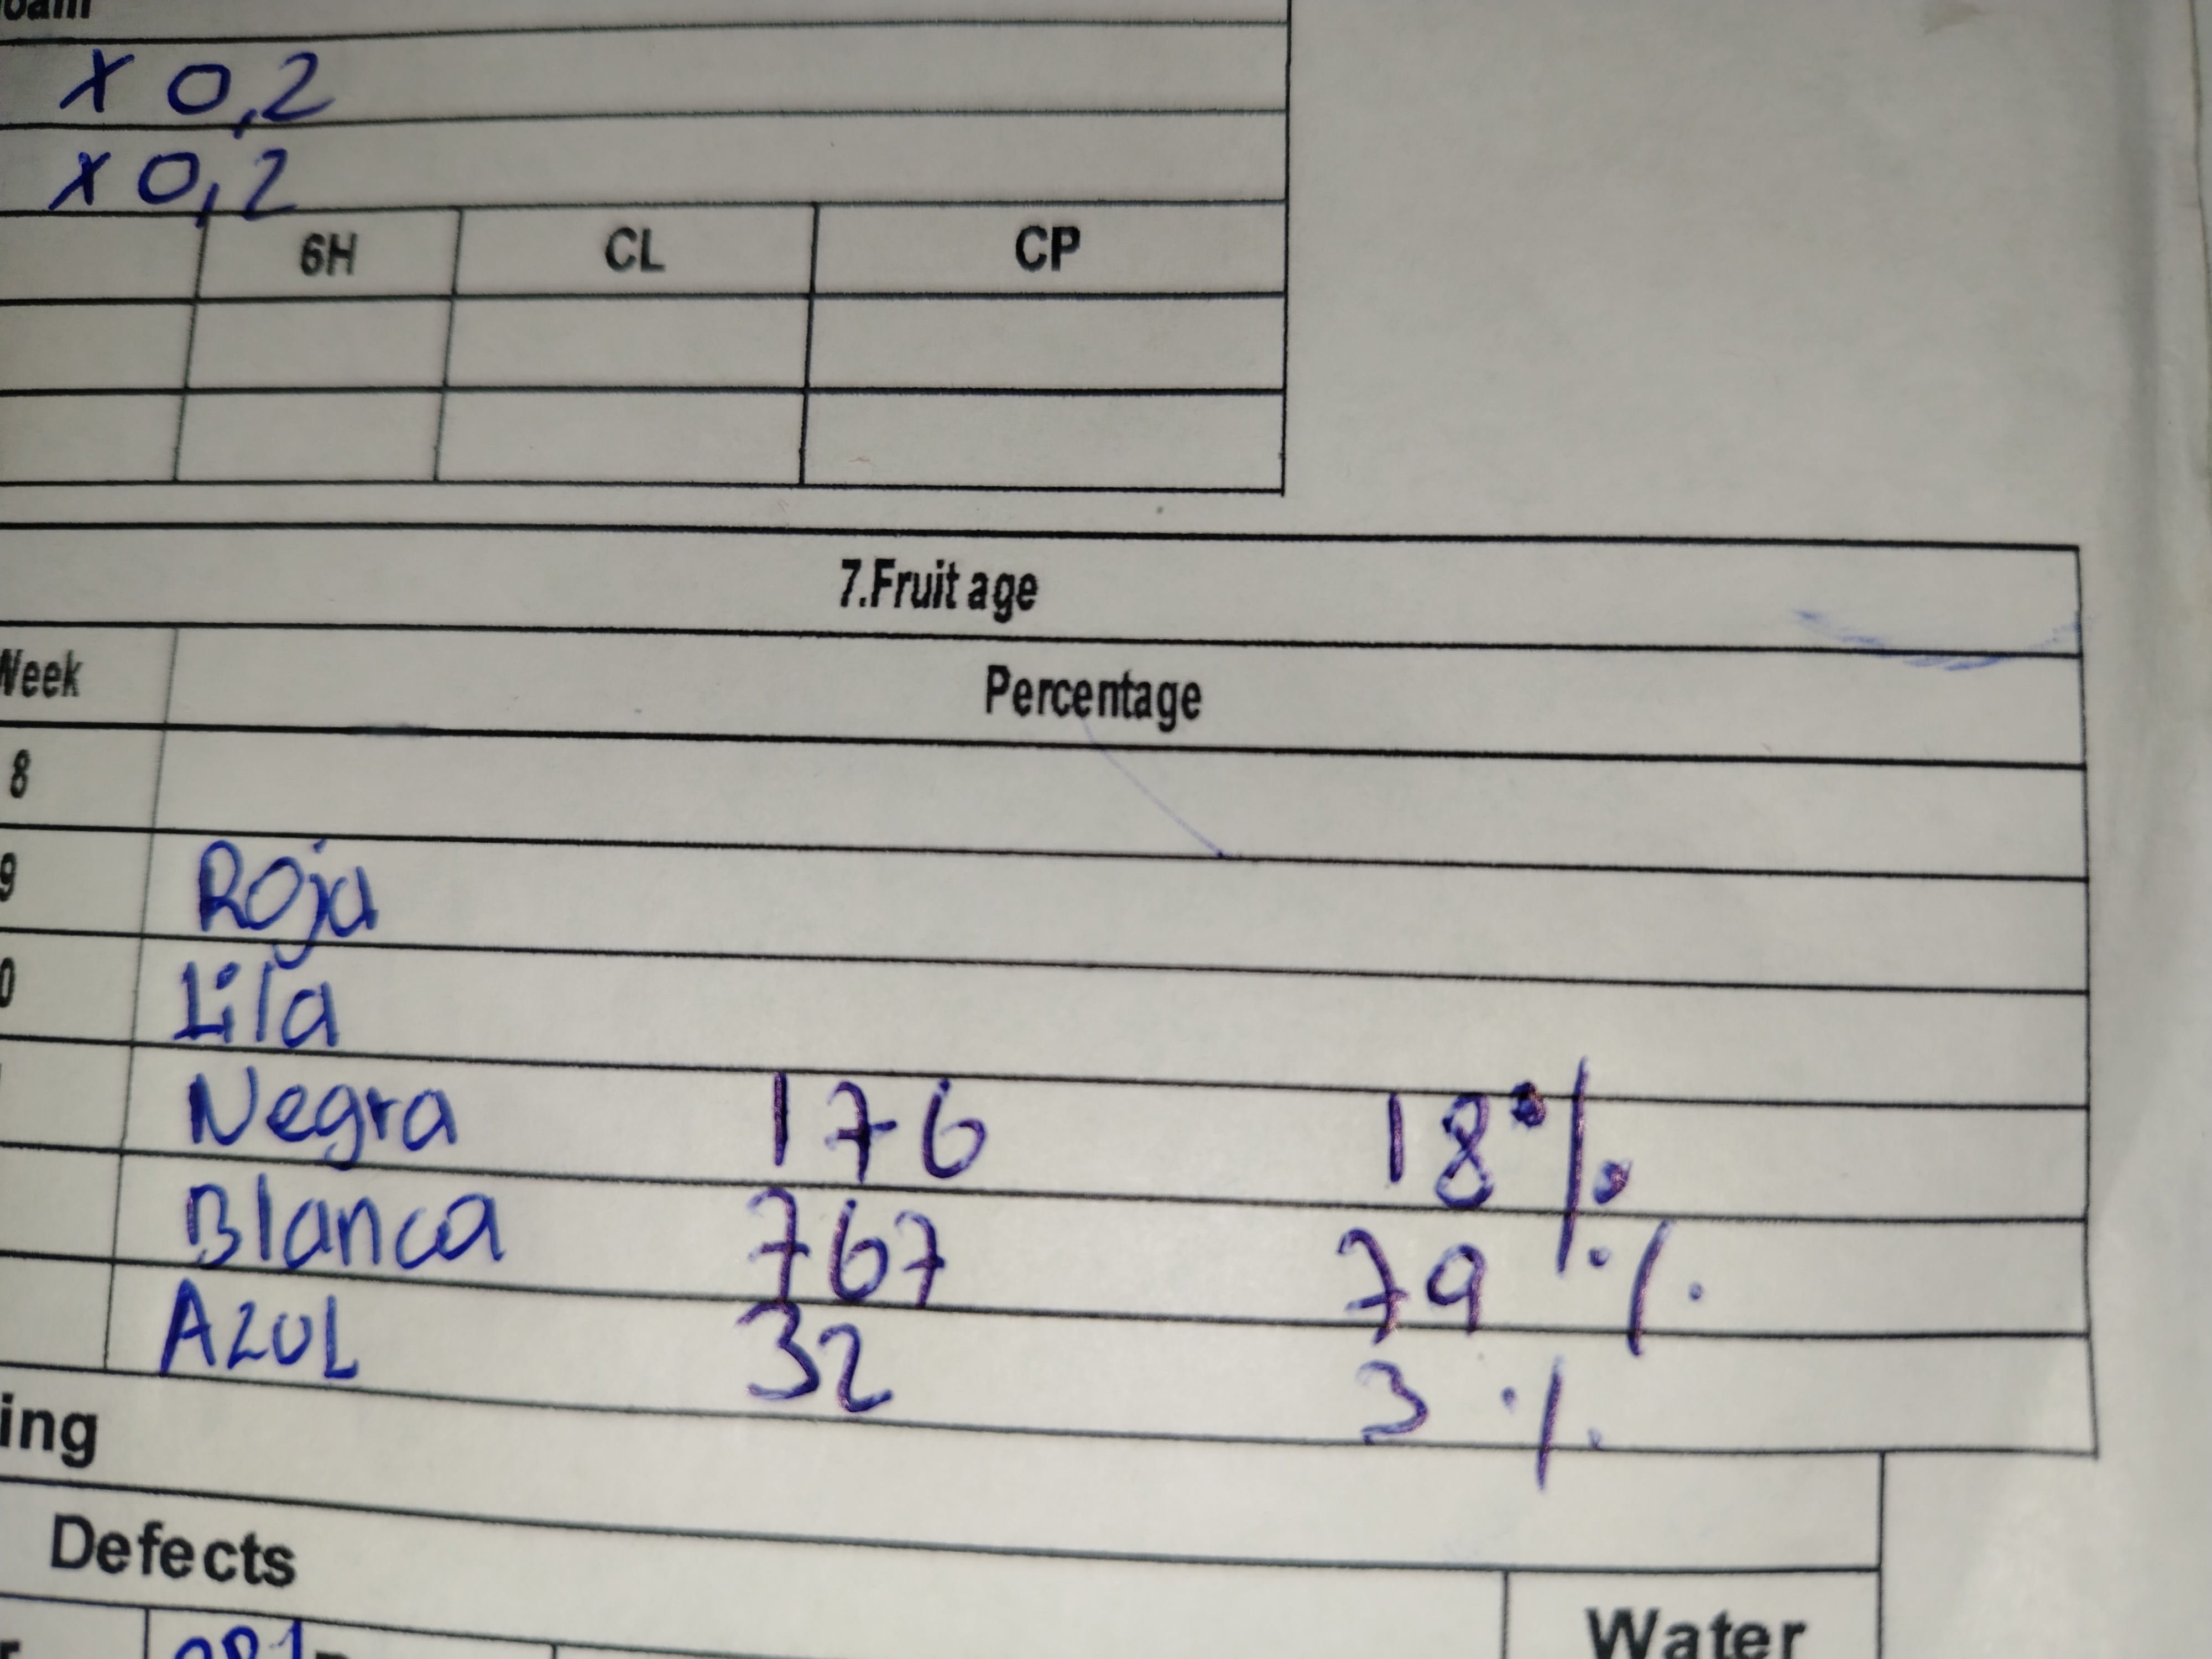 x 0,2
x 0,2
6H CL CP
7.Fruit age
Week Percentage
8
9 Roja
0 Lila
Negra 176 18%
Blanca 767 79 %
AZUL 32 3 %
ing
Defects
Water